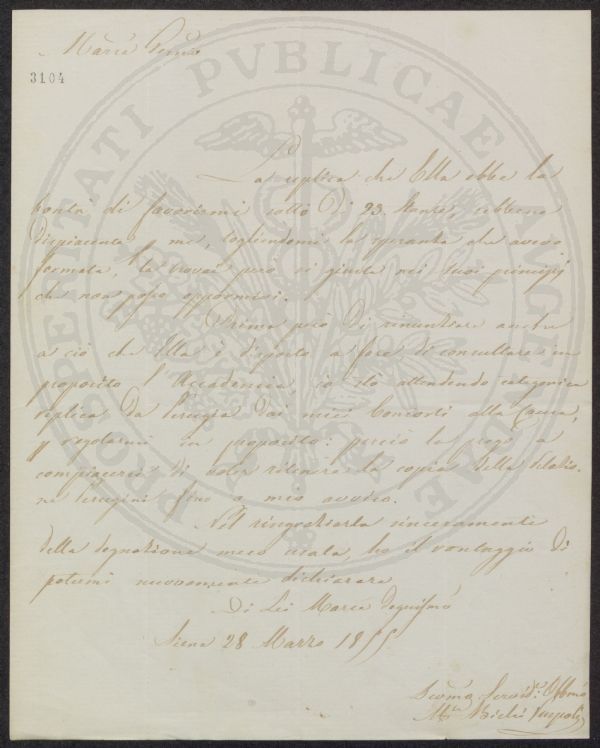 3104
La replica che Ella ebbe la
bontà di favorirmi sotto dì 23. stante, sebbene
dispiacente p me, togliendomi la speranza che avevo
formata, la trovai però sì giusta nei suoi principj
che non posso oppormivi.
Prima però di rinunziare anche
a ciò che Ella è disposta a fare di consultare in
proposito l'Accademia, io stò attendendo categorica
replica da Perugia dai miei Consorti alla Causa,
p regolarmi in proposito: perciò la prego a
compiacersi di voler ritenere la copia della Relazio-
ne Perugini fino a mio avviso.
Nel ringraziarla sinceramente
della degnazione meco usata, ho il vantaggio di
potermi nuovamente dichiarare
Di Lei March
Siena 28 Marzo 1855
PROSPERITATI PVBLICAE AVGENDAE